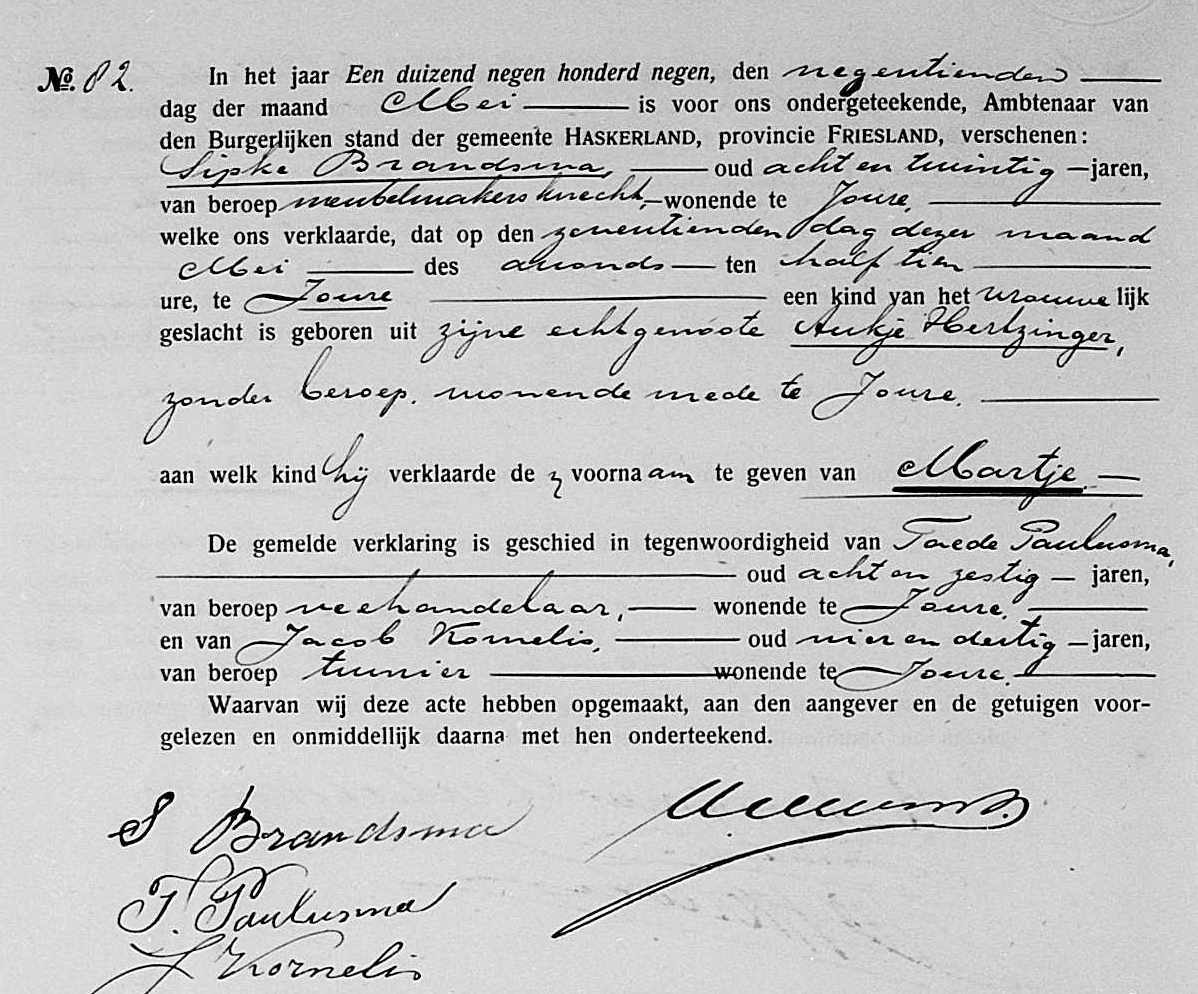 No. 82. In het jaar Een duizend negen honderd negen, den negentienden
dag der maand Mei is voor ons ondergeteekende, Ambtenaar van
den Burgerlijken stand der gemeente HASKERLAND, provincie FRIESLAND, verschenen:
Sipke Brandsma, oud acht en twintig jaren,
van beroep meubelmakersknecht, wonende te Joure,
welke ons verklaarde, dat op den zeventienden dag dezer maand
Mei des avonds ten half tien
ure, te Joure een kind van het vrouwelijk
geslacht is geboren uit zijne echtgenoote Aukje Hertzinger,
zonder beroep, wonende mede te Joure,
aan welk kind hij verklaarde de voornaam te geven van Martje
De gemelde verklaring is geschied in tegenwoordigheid van Taede Paulusma,
oud acht en zestig jaren,
van beroep veehandelaar, wonende te Joure,
en van Jacob Kornelis, oud vier en dertig jaren,
van beroep tuinier wonende te Joure.
Waarvan wij deze acte hebben opgemaakt, aan den aangever en de getuigen voor-
gelezen en onmiddellijk daarna met hen onderteekend.
S Brandsma
T. Paulusma
J Kornelis